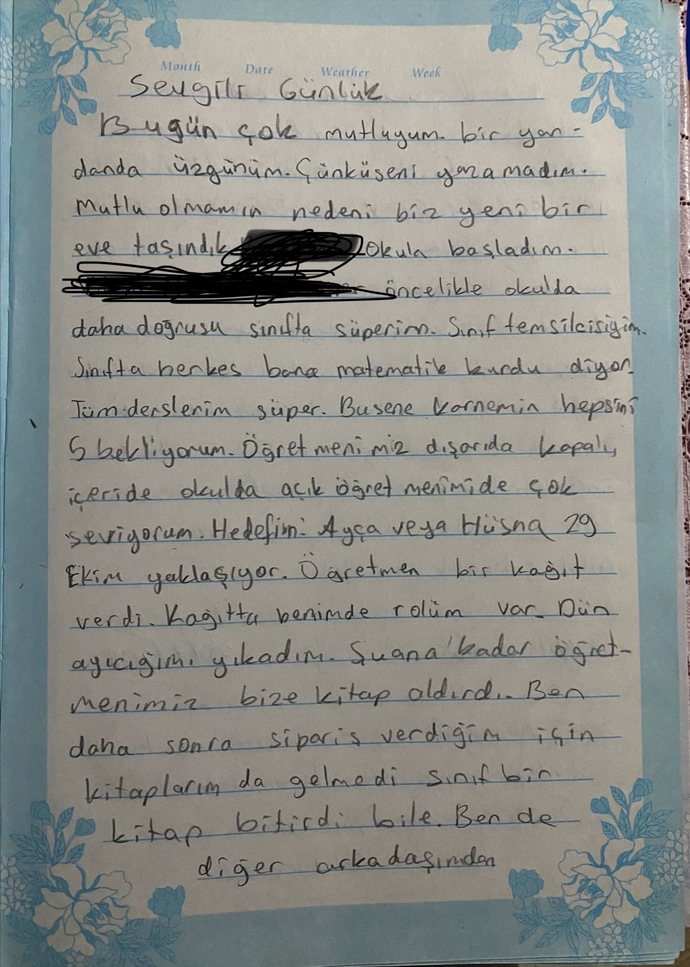 Month Date Weather Week
Sevgili Günlük
Bugün çok mutluyum. bir yan-
danda üzgünüm. Çünküseni yazamadım.
Mutlu olmamın nedeni biz yeni bir
eve taşındık Okula başladım.
öncelikle okulda
daha doğrusu sınıfta süperim. Sınıf temsilcisiyim.
Sınıfta herkes bana matematik kurdu diyor.
Tüm derslerim süper. Busene karnemin hepsini
5 bekliyorum. Öğretmenimiz dışarıda kapalı,
içeride okulda açık öğretmenimide çok
seviyorum. Hedefim: Ayça veya Hüsna 29
Ekim yaklaşıyor. Öğretmen bir kağıt
verdi. Kağıtta benimde rolüm var. Dün
ayıcığımı yıkadım. Şuana kadar öğret-
menimiz bize kitap aldırdı. Ben
daha sonra sipariş verdiğim için
kitaplarım da gelmedi sınıf bir
kitap bitirdi bile. Ben de
diğer arkadaşımdan